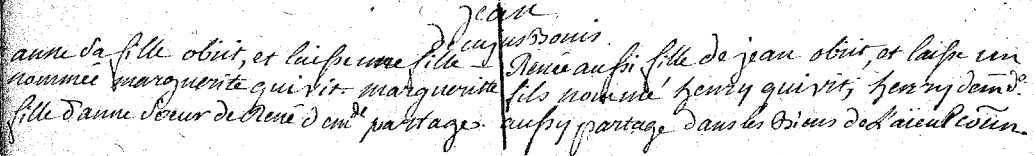 jean
de cujus bonis.
anne sa fille obiit, et laisse une fille
nommée marguerite qui vit. marguerite
fille d'anne soeur de René demde partage.
Renée aussi fille de jean obiit, et laisse un
fils nommé henry qui vit, henry demde
aussy partage dans les Biens de L'aïeul com̃un